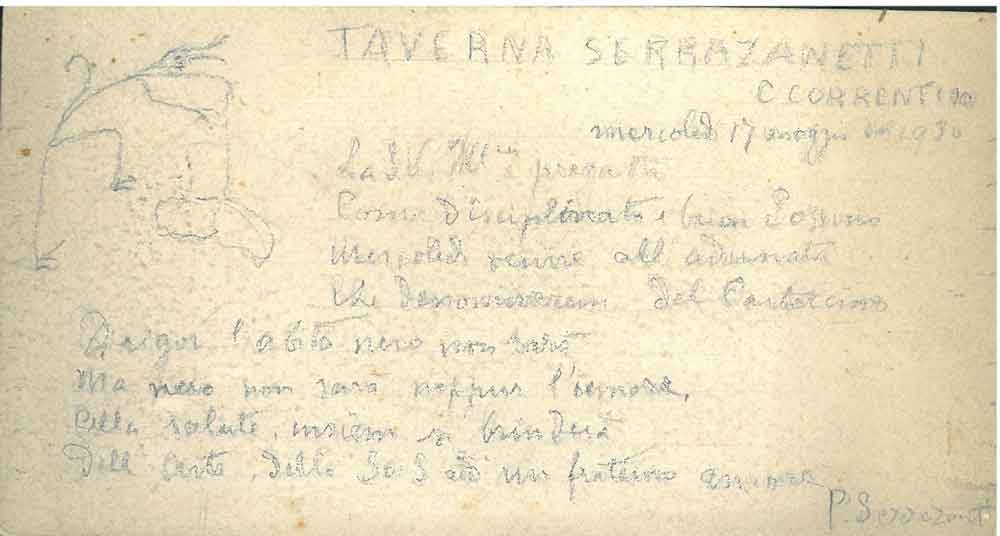 TAVERNA SERRAZANETTI
C CORRENTI
mercoledì 17 maggio 1930
La S.V. è pregata
Come disciplinato e buon
Mercoledì venire all adunata
che denomineremo del
Di rigor l'abito nero non sarà
Ma nero non sarà neppur l'umore,
Alla salute, insiem si brinderà
Dell' Arte, della ed un fraterno
P. Serrazanetti